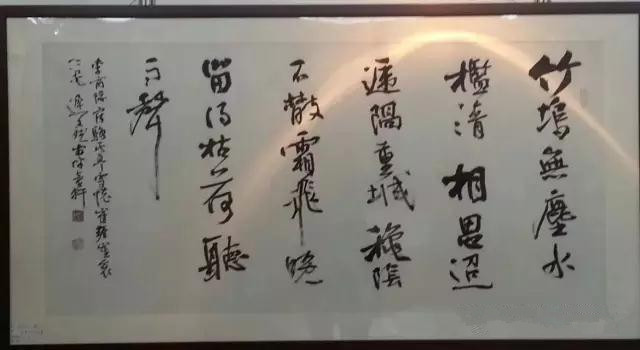 竹塢無塵水
檻清相思迢
遞隔重城秋陰
不散霜飛晚
留得枯荷聽
雨聲
李商隱宿駱氏亭寄懷崔雍崔袞